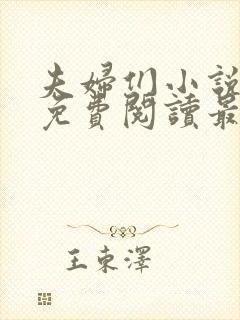 夫婦们小說
免費閱讀最
王東澤